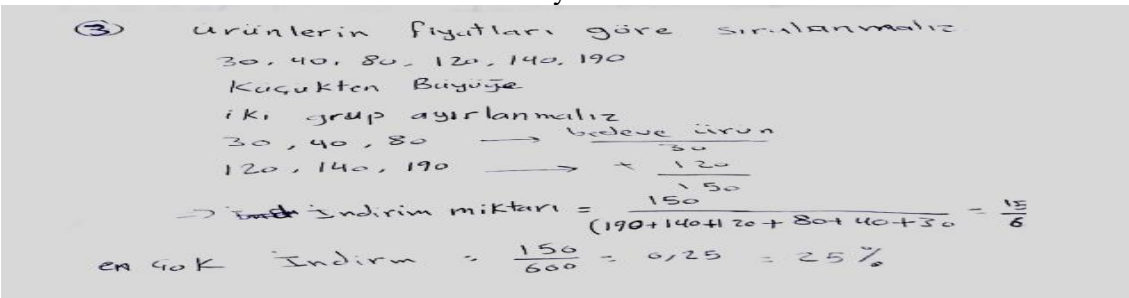 ③ ürünlerin fiyatları göre sıralanmalız
30, 40, 80, 120, 140, 190
Küçükten Büyüğe
iki grup ayırlanmalız
30, 40, 80 → bedeve ürün 30
120, 140, 190 → + 120
150
→ İndirim miktarı = 150 / (190+140+120+80+40+30 = 15/6
en çok İndirm = 150/600 = 0,25 = 25%